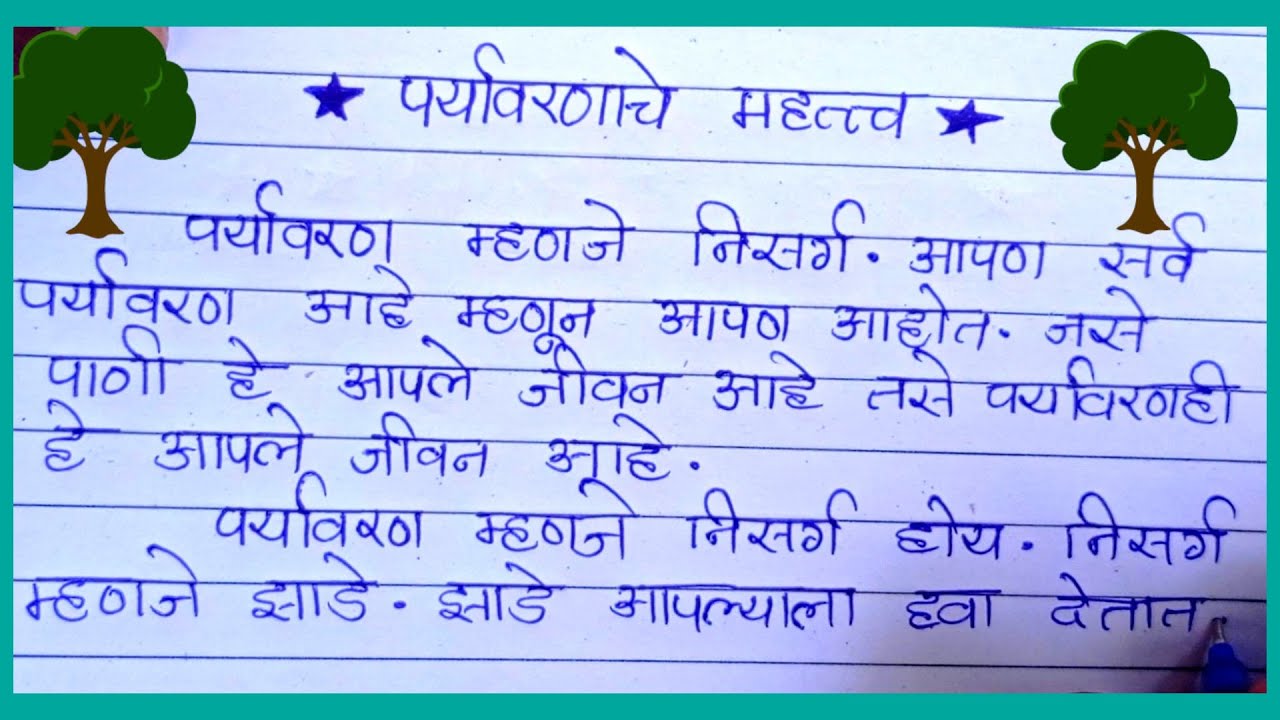 ★ पर्यावरणाचे महत्त्व ★
पर्यावरण म्हणजे निसर्ग. आपण सर्व
पर्यावरण आहे म्हणून आपण आहोत. जसे
पाणी हे आपले जीवन आहे तसे पर्यावरणही
हे आपले जीवन आहे.
पर्यावरण म्हणजे निसर्ग होय. निसर्ग
म्हणजे झाडे. झाडे आपल्याला हवा देतात.